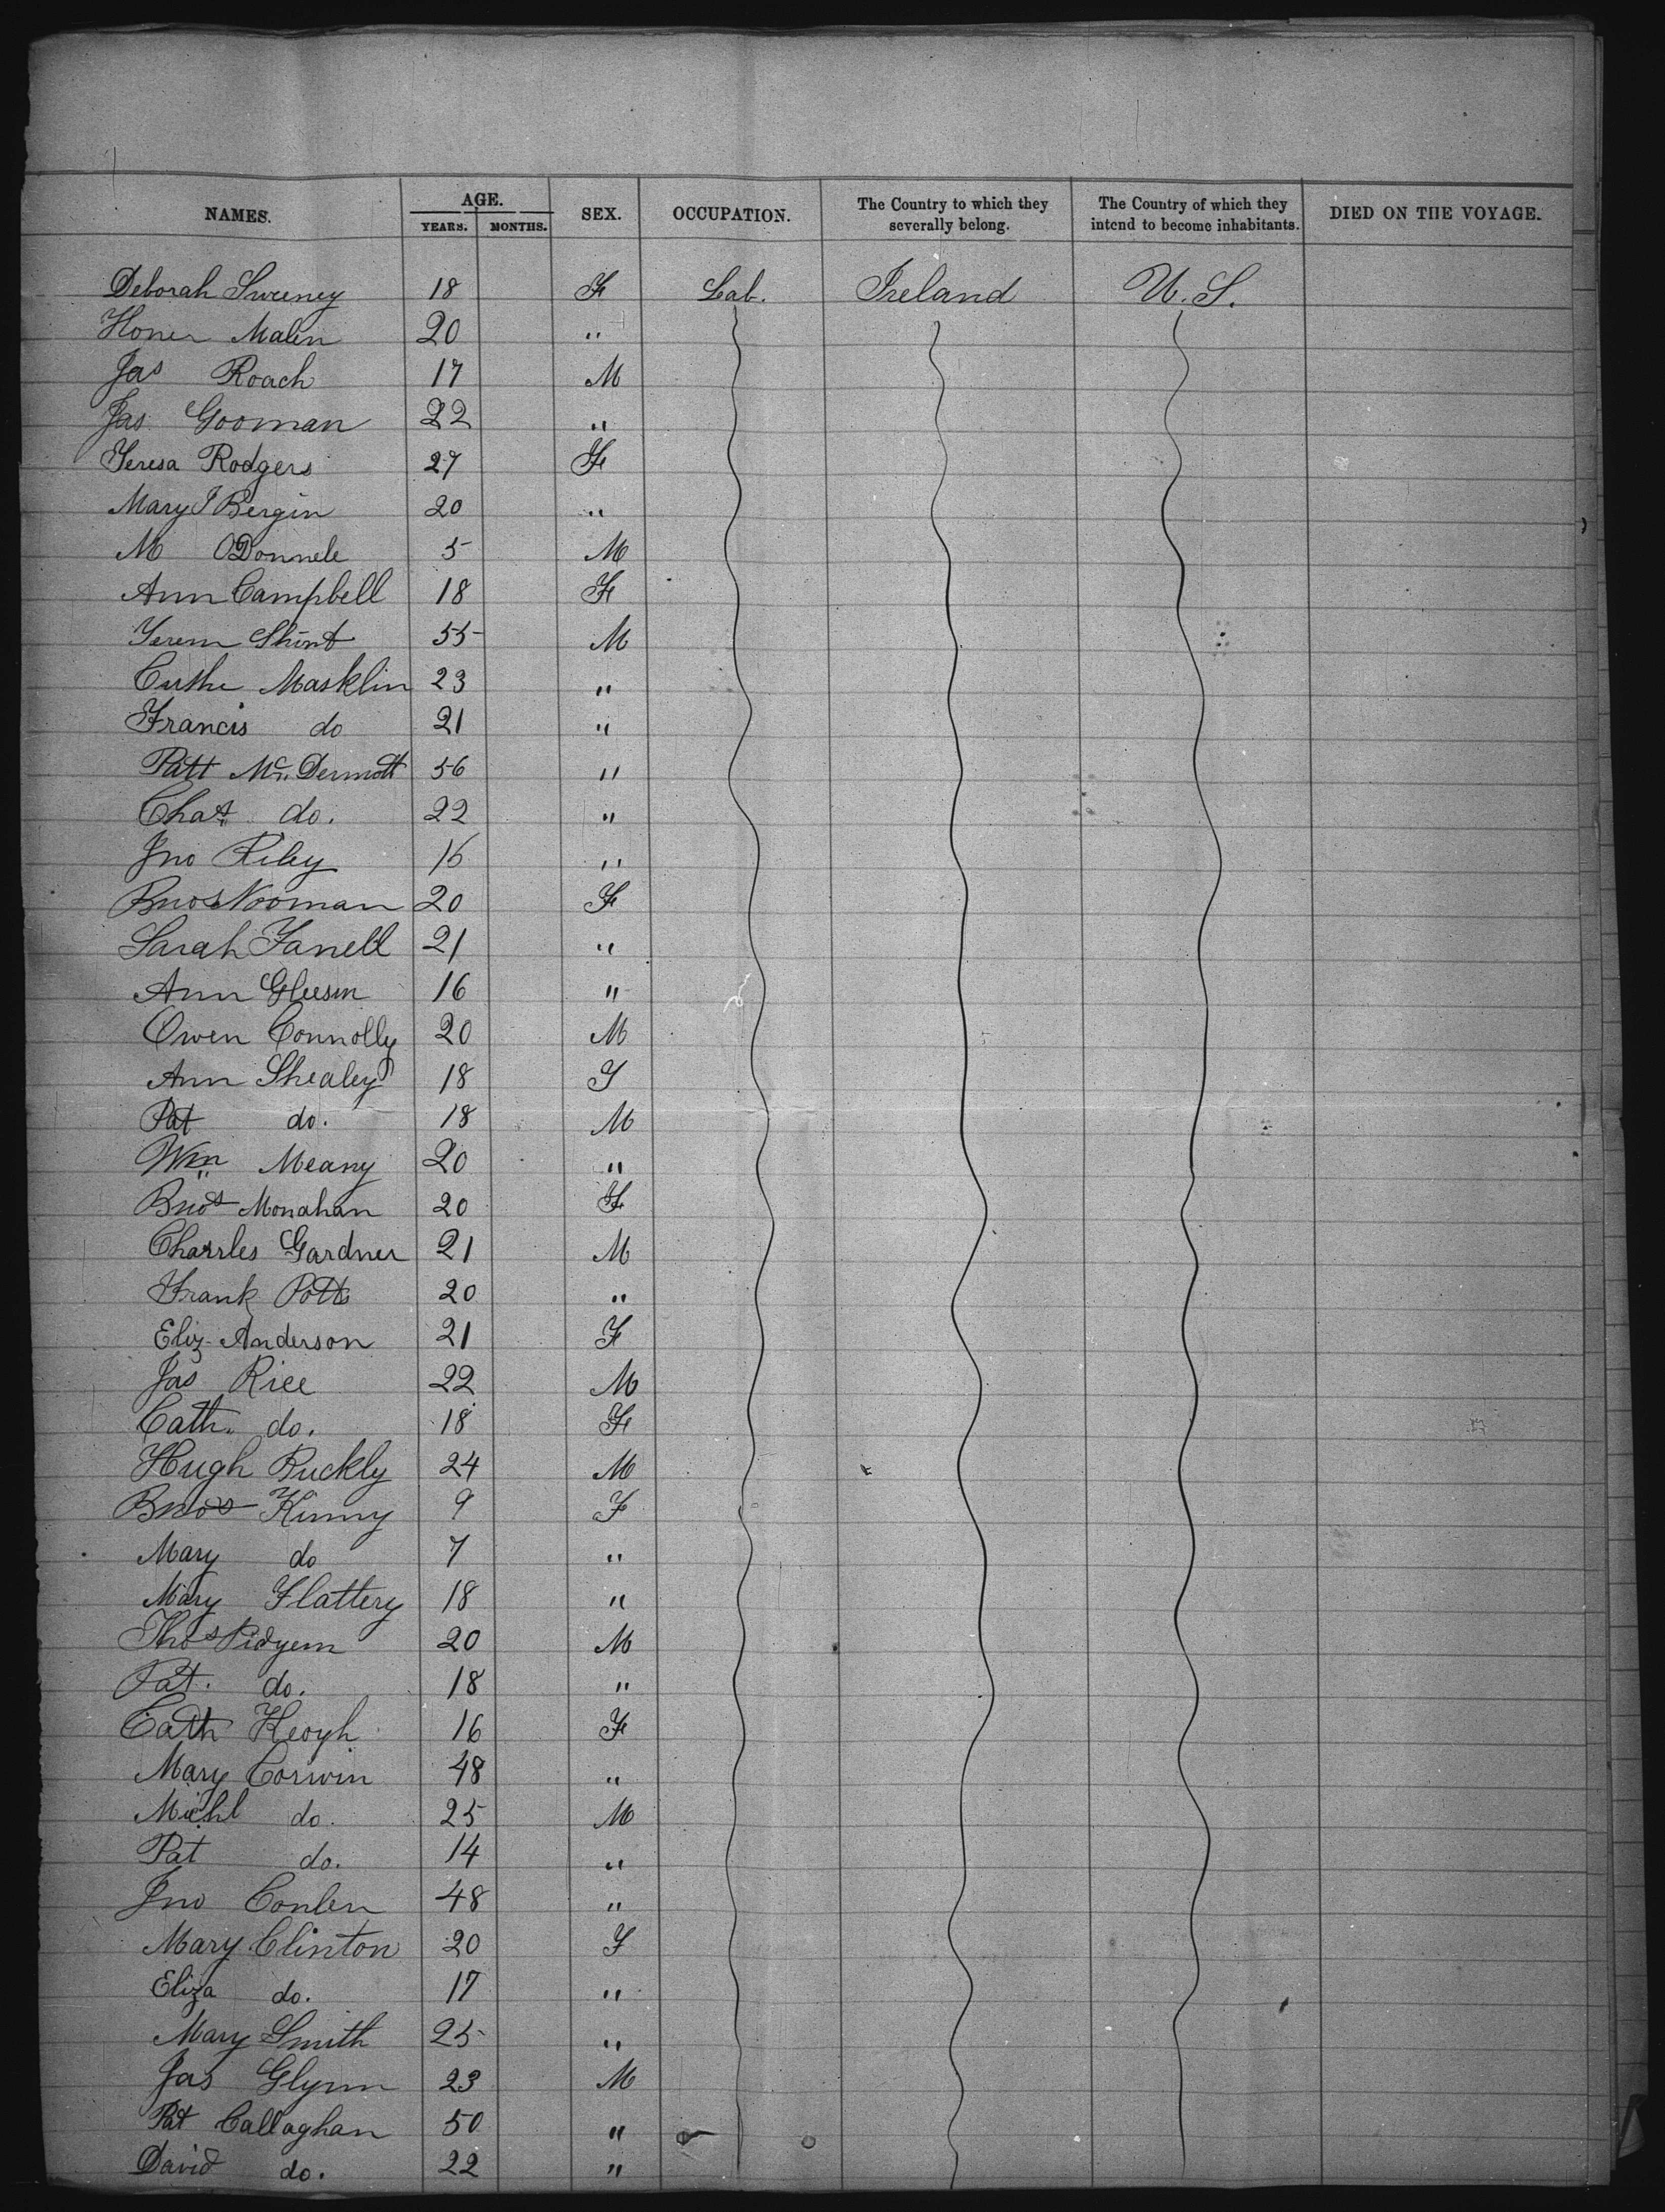 NAMES. AGE. SEX. OCCUPATION. The Country to which they severally belong. The Country of which they intend to become inhabitants. DIED ON THE VOYAGE.
YEARS. MONTHS.
Deborah Sweeney 18 F Lab. Ireland U.S.
Honer Malin 20 "
Jas Roach 17 M
Jas Gooman 22 "
Teresa Rodgers 27 F
Mary J Bergin 20 "
M ODonnele 5 M
Ann Campbell 18 F
Jerem Shint 55 M
Cuthe Masklin 23 "
Francis do 21 "
Patt Mc. Dermott 56 "
Chas. do. 22 "
Jno Riley 16 "
Bnos Nooman 20 F
Sarah Fanell 21 "
Ann Gleeson 16 "
Owen Connolly 20 M
Ann Shealey 18 F
Pat do. 18 M
Wm Meany 20 "
Bnos Monahan 20 F
Charrles Gardner 21 M
Frank Potts 20 "
Eliz. Anderson 21 F
Jas Rice 22 M
Cath. do. 18 F
Hugh Buckly 24 M
Bnos Kinny 9 F
Mary do 7 "
Mary Flattery 18 "
Thos Pidyem 20 M
Pat. do. 18 "
Cath Keogh 16 F
Mary Corwin 48 "
Michl do. 25 M
Pat do. 14 "
Jno Conlen 48 "
Mary Clinton 20 F
Eliza do. 17 "
Mary Smith 25 "
Jas Glynn 23 M
Pat Callaghan 50 "
David do. 22 "